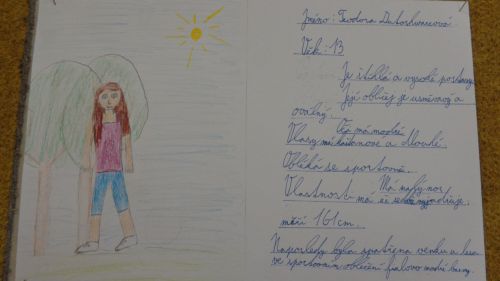 Jméno: Teodora
Věk: 13
Je štíhlá a vysoké postavy.
Její obličej je usměvavý a
oválný.
Oči má modré
Vlasy má kaštanové a dlouhé.
Obléká se sportovně.
Má malý nos
Vlastnosti má
měří 161cm.
Naposledy byla spatřena venku u lesa
ve sportovním oblečení fialovo modré barvy.